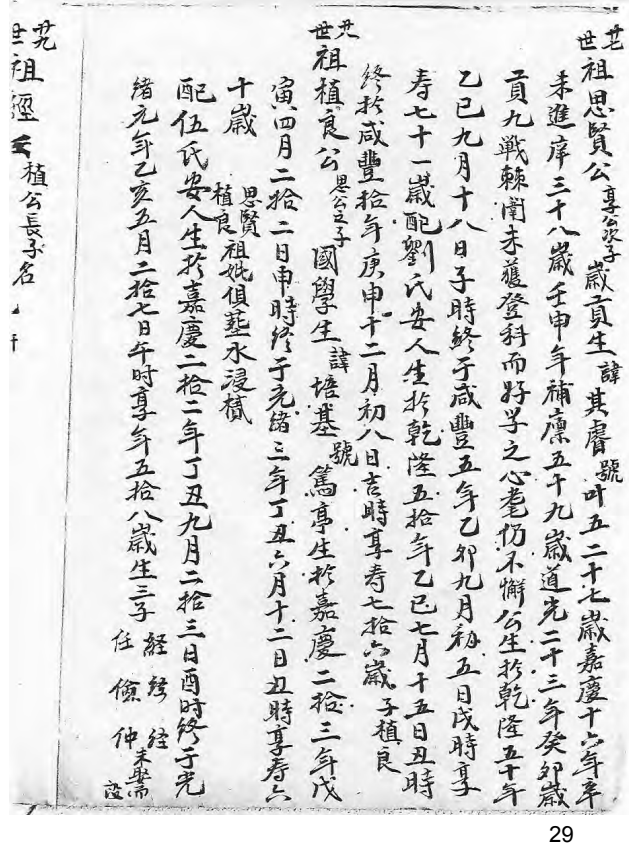 廿七世祖思賢公 享公次子 歲貢生諱其濬號叶五二十七歲嘉慶十六年辛
未進庠三十八歲壬午年補廪五十九歲道光二十三年癸卯歲
貢九戰棘闈未獲登科而好学之心耄仍不懈公生扵乾隆五十年
乙巳九月十八日子時終于咸豐五年乙卯九月初五日戌時享
寿七十一歲配劉氏安人生扵乾隆五拾年乙巳七月十五日丑時
終扵咸豐拾年庚申十二月初八日吉時享寿七拾六歲子植良
廿八世祖植良公 思公之子 國學生諱培基號篤亭生扵嘉慶二拾三年戊
寅四月二拾二日申時終于光緒三年丁丑六月十二日丑時享寿六
十歲 思賢植良祖妣俱塟水浸樻
配伍氏安人生扵嘉慶二拾二年丁丑九月二拾三日酉时終于光
緒元年乙亥五月二拾七日午时享年五拾八歲生三子 經任 經儉 經仲 未娶而
廿九世祖經 植公長子名
29